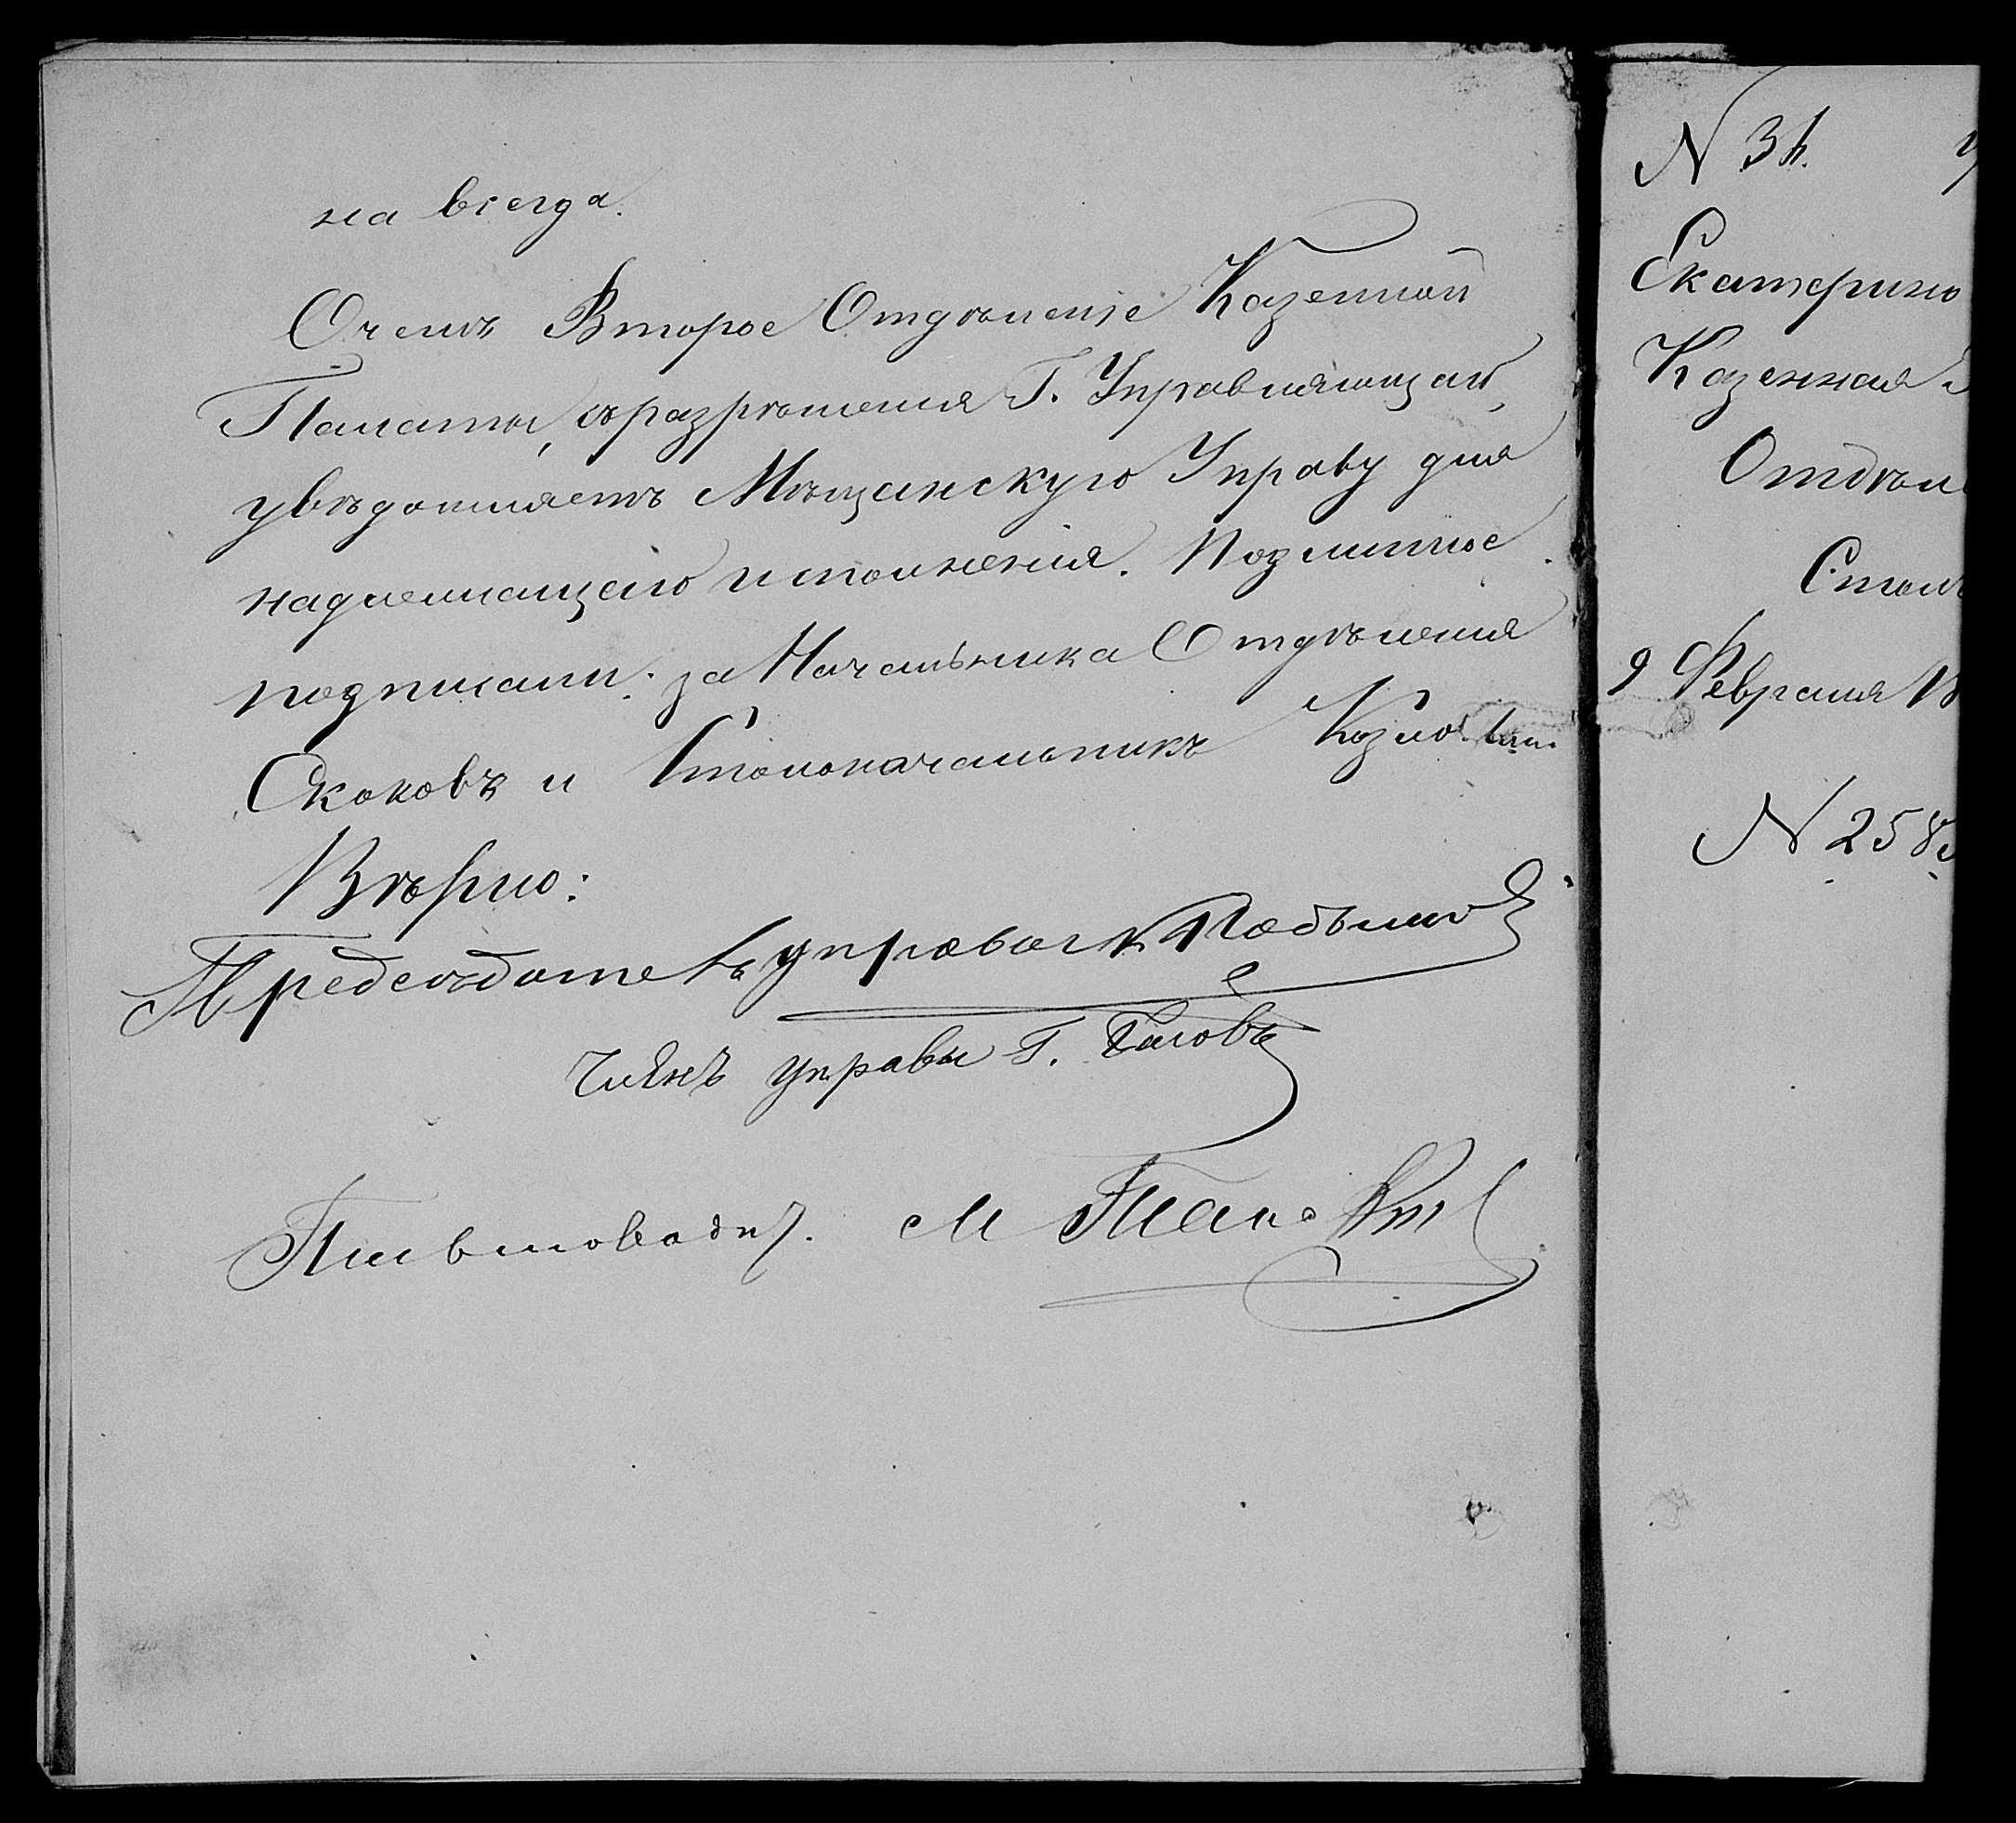 на всегда.
О чемъ Второе Отдѣленіе Казенной
Палаты, съ разрѣшенія Г. Управляющаго,
увѣдомляетъ Мѣщанскую Управу для
надлежащаго исполненія. Подлинное
подписали: за Начальника Отдѣленія
Скоковъ и Столоначальникъ
Вѣрно:
Председатель управы
Членъ управы Г.
Письмоводит. М
N 31.
Екатерино
Казенная
Отдѣл
Столъ
9 Февраля 18
N 258